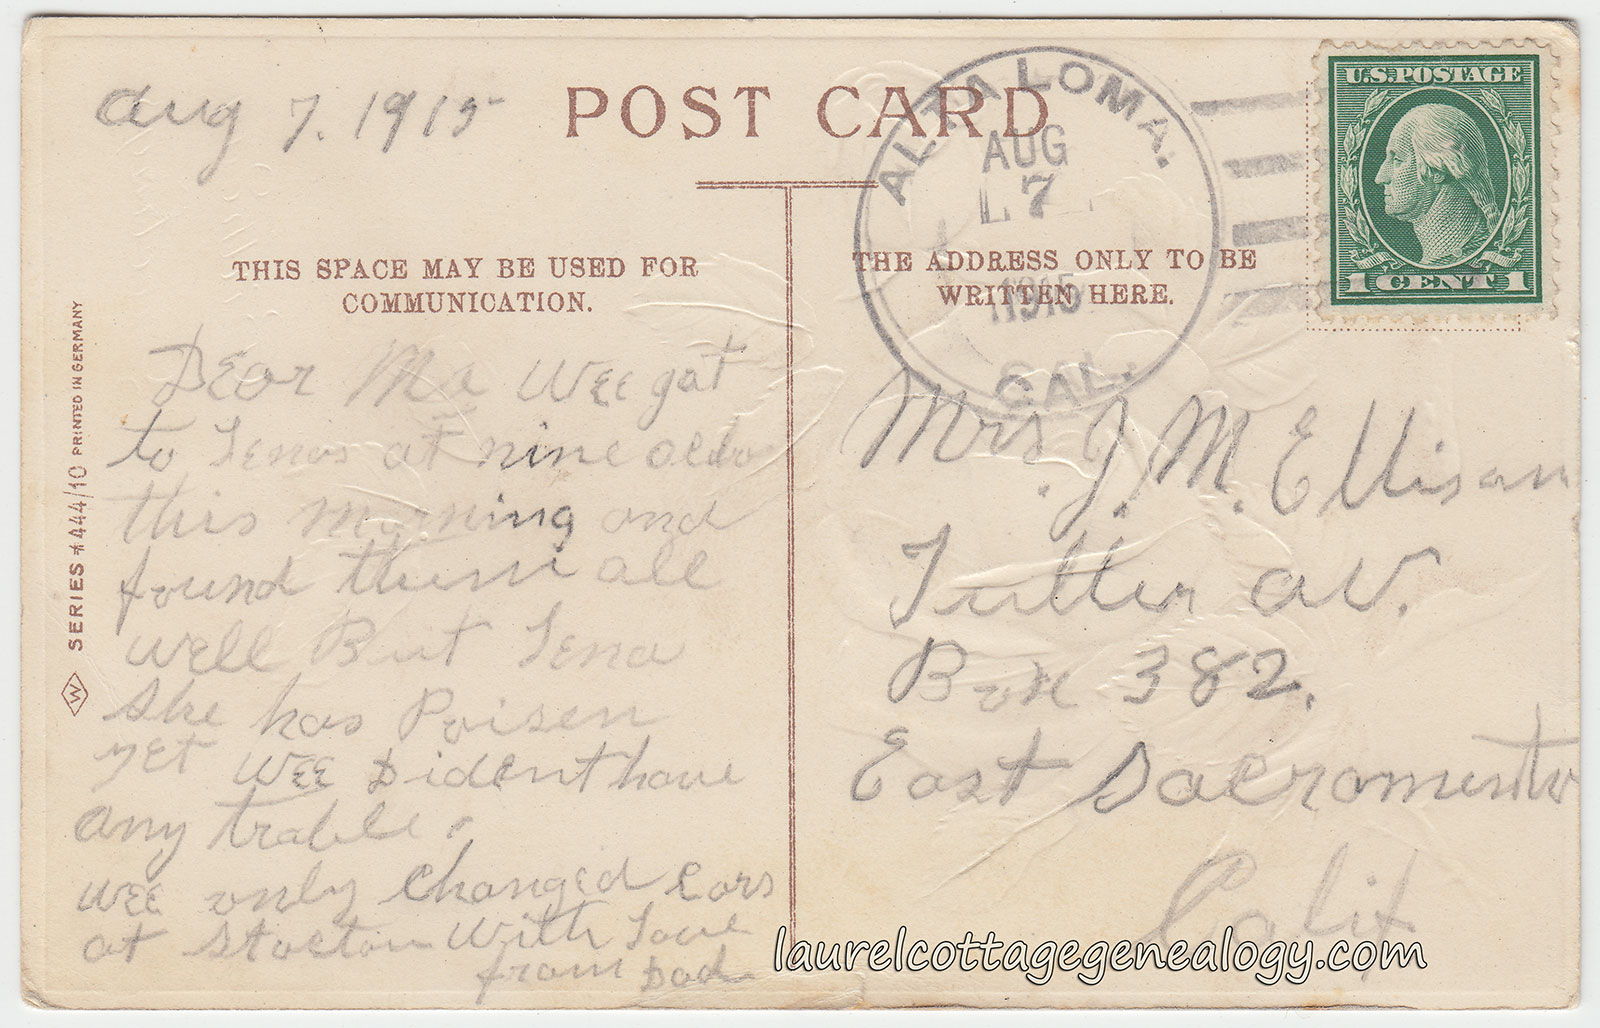 Aug 7. 1915
POST CARD
ALTA LOMA.
AUG
7
1915
CAL.
U.S. POSTAGE
1 CENT 1
THIS SPACE MAY BE USED FOR
COMMUNICATION.
THE ADDRESS ONLY TO BE
WRITTEN HERE.
SERIES *444/10 PRINTED IN GERMANY
W
Dear Ma Wee gat
to Tenas at nine
this morning and
found them all
well But Tena
she has Poisen
yet wee Dident have
any trable.
wee only Changed Cars
at Stocton With Love
from Dad
Mrs. J. M. Ellison
Tuller av.
Box 382.
East Sacramento
Calif
laurelcottagegenealogy.com